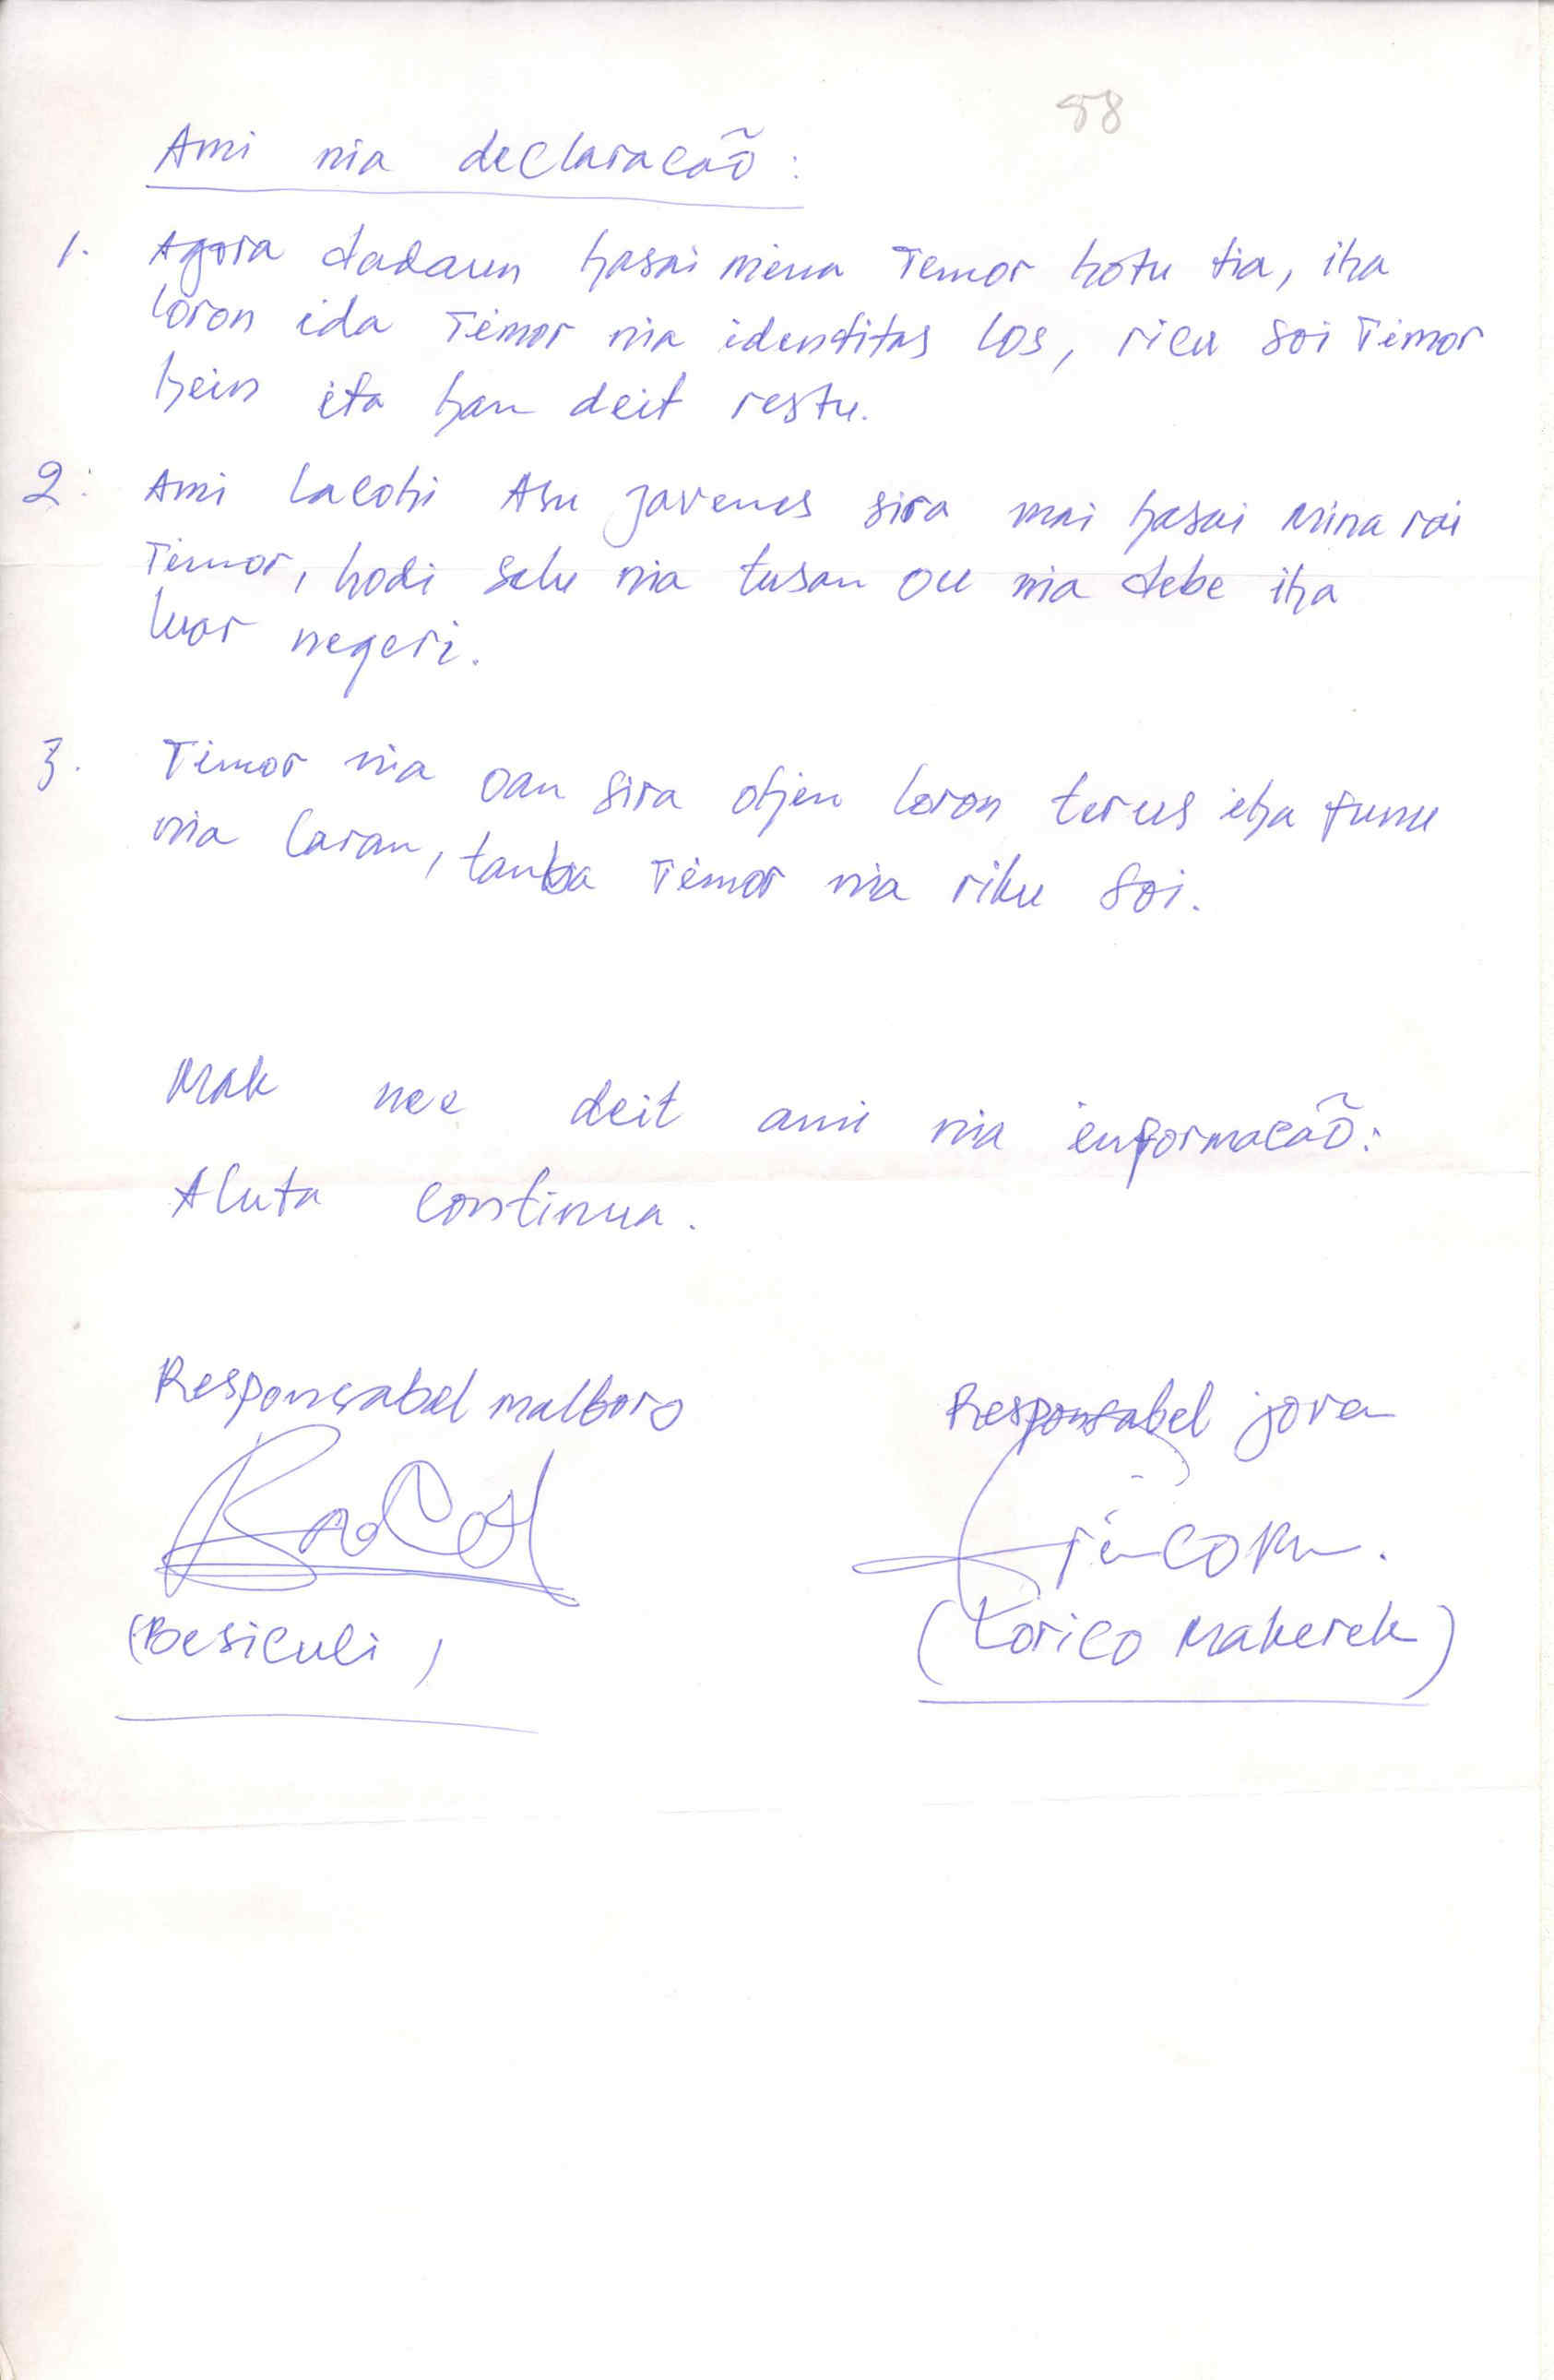 58
Ami nia declaracaõ :
1. Agora dadaun hasai mina Temor hotu tia, iha
loron ida Timor nia identitas los, ricu soi Timor
hein ita han deit restu.
2. Ami lacohi Asu javenes sira mai hasai Mina rai
Timor, hodi selu nia tusan ou nia debe iha
luar negeri.
3. Timor nia oan sira ohjen loron terus iha funu
nia laran, tanba Timor nia riku soi.
Mak nee deit ami nia informacaõ:
Aluta continua.
Responsabel malboro
Responsabel joven
(Besiculi)
(Lorico Makerek)